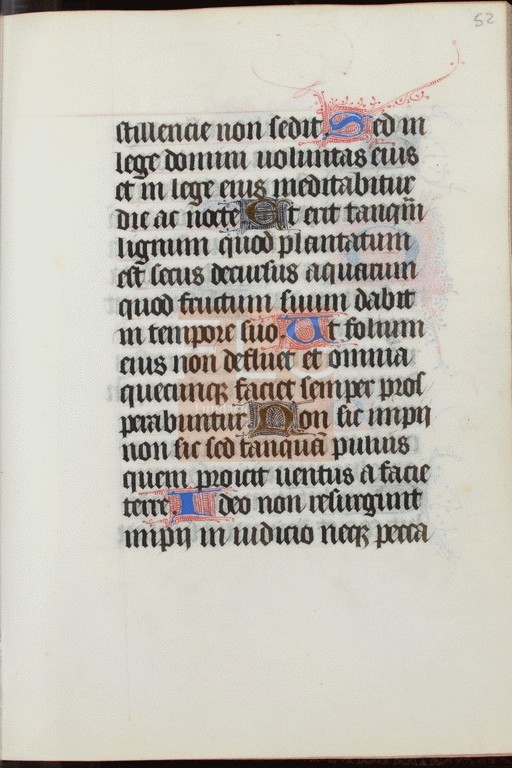 52
stillencie non sedit. Sed in
lege domini uoluntas eius
et in lege eius meditabitur
die ac nocte Et erit tanqm̄
lignum quod plantatum
est secus decursus aquarum
quod fructum suum dabit
in tempore suo. Ut folium
eius non defluet et omnia
quecunqꝫ faciet semper pros
perabuntur Non sic impij
non sic sed tanquā puluis
quem proicit uentus a facie
terre. Ideo non resurgunt
impij in iudicio neqꝫ pecca